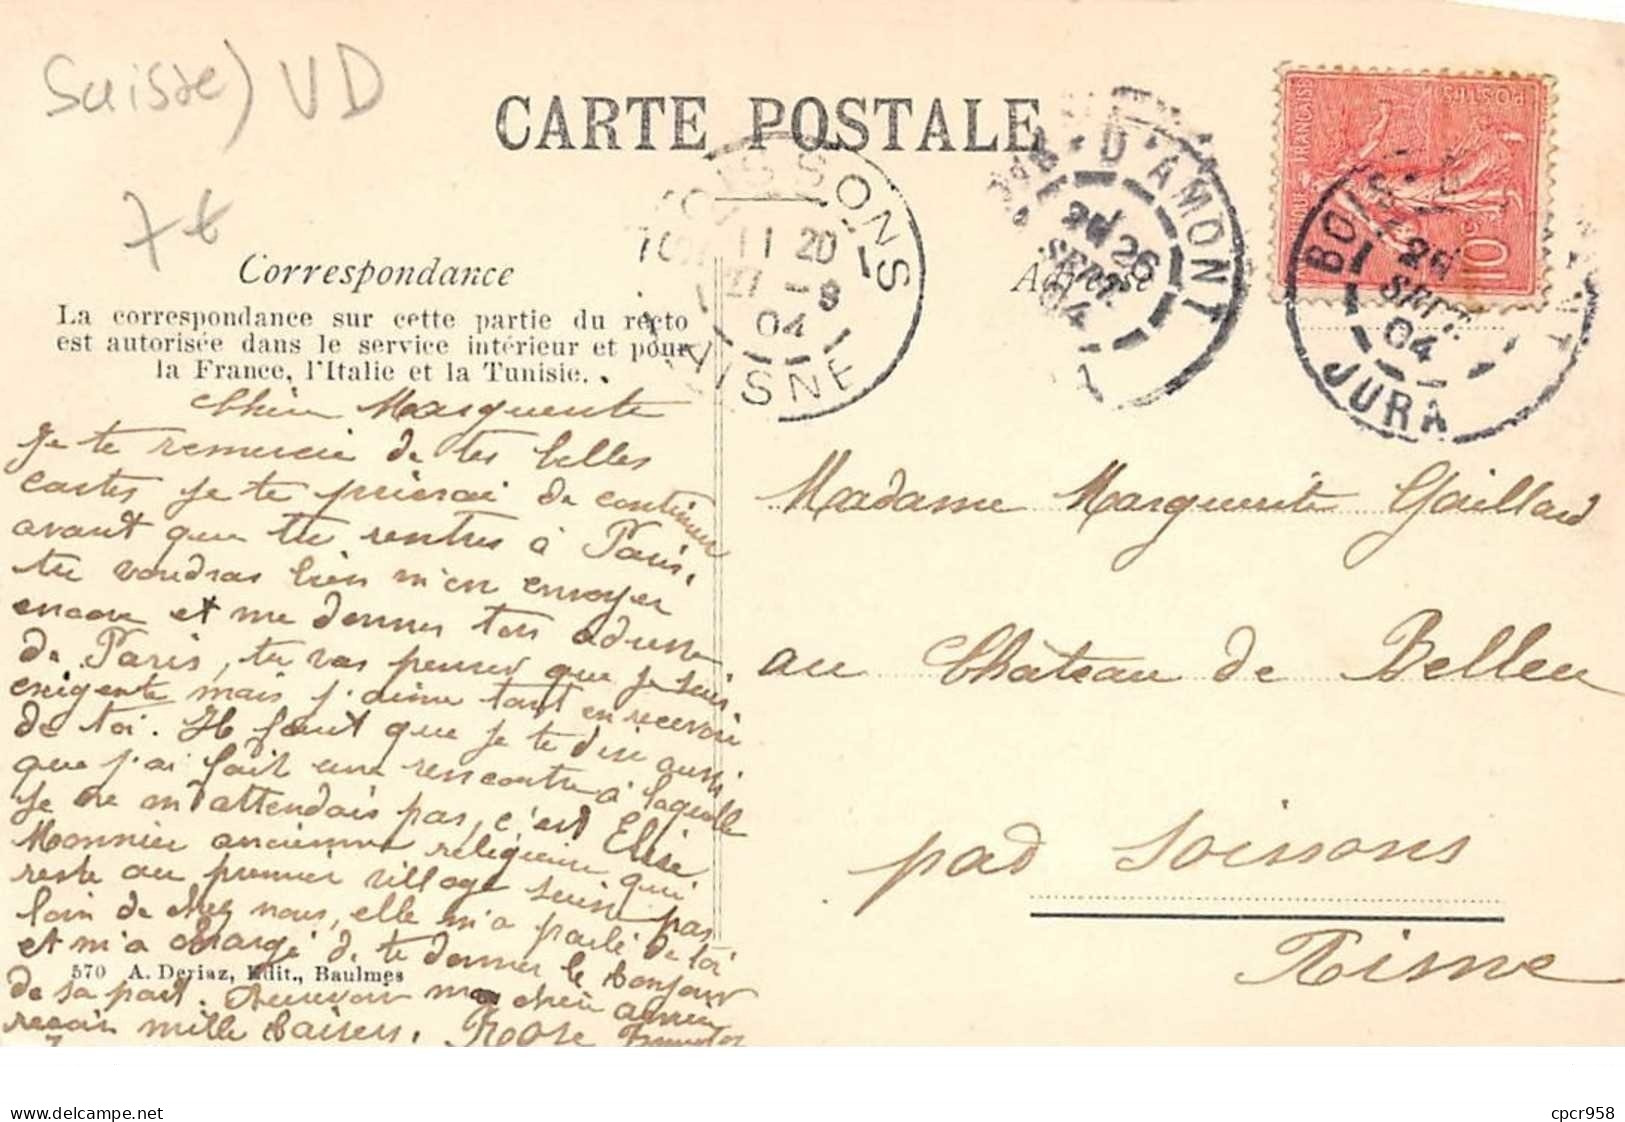 Suisse) VD
7t
CARTE POSTALE
Correspondance
La correspondance sur cette partie du recto
est autorisée dans le service intérieur et pour
la France, l'Italie et la Tunisie.
Chère Marguerite
Je te remercie de tes belles
cartes je te prierai de continuer
avant que tu rentres à Paris,
tu voudras bien m'en envoyer
encore et me donner ton adresse
de Paris, tu vas penser que je suis
exigente mais j'aime tant en recevoir
de toi. Il faut que je te dise aussi
que j'ai fait une rencontre à laquelle
je ne m'attendais pas, c'est Elise
Monnier ancienne religieuse qui
reste au premier village suisse pas
loin de chez nous, elle m'a parlé de toi
et m'a chargé de te donner le bonjour
de sa part. Aurevoir ma chère amie
reçois mille baisers. Rose
570 A. Deriaz, Edit., Baulmes
SOISSONS
11 20
27 -9
04
AISNE
D'AMONT
26
SEPT
04
Adresse
FRANÇAISE
POSTES
10c
BOIS-D'AMONT
26
SEPT
04
JURA
Madame Marguerite Gaillard
au Château de Belleu
par Soissons
Aisne
delcampe.net
cpcr958